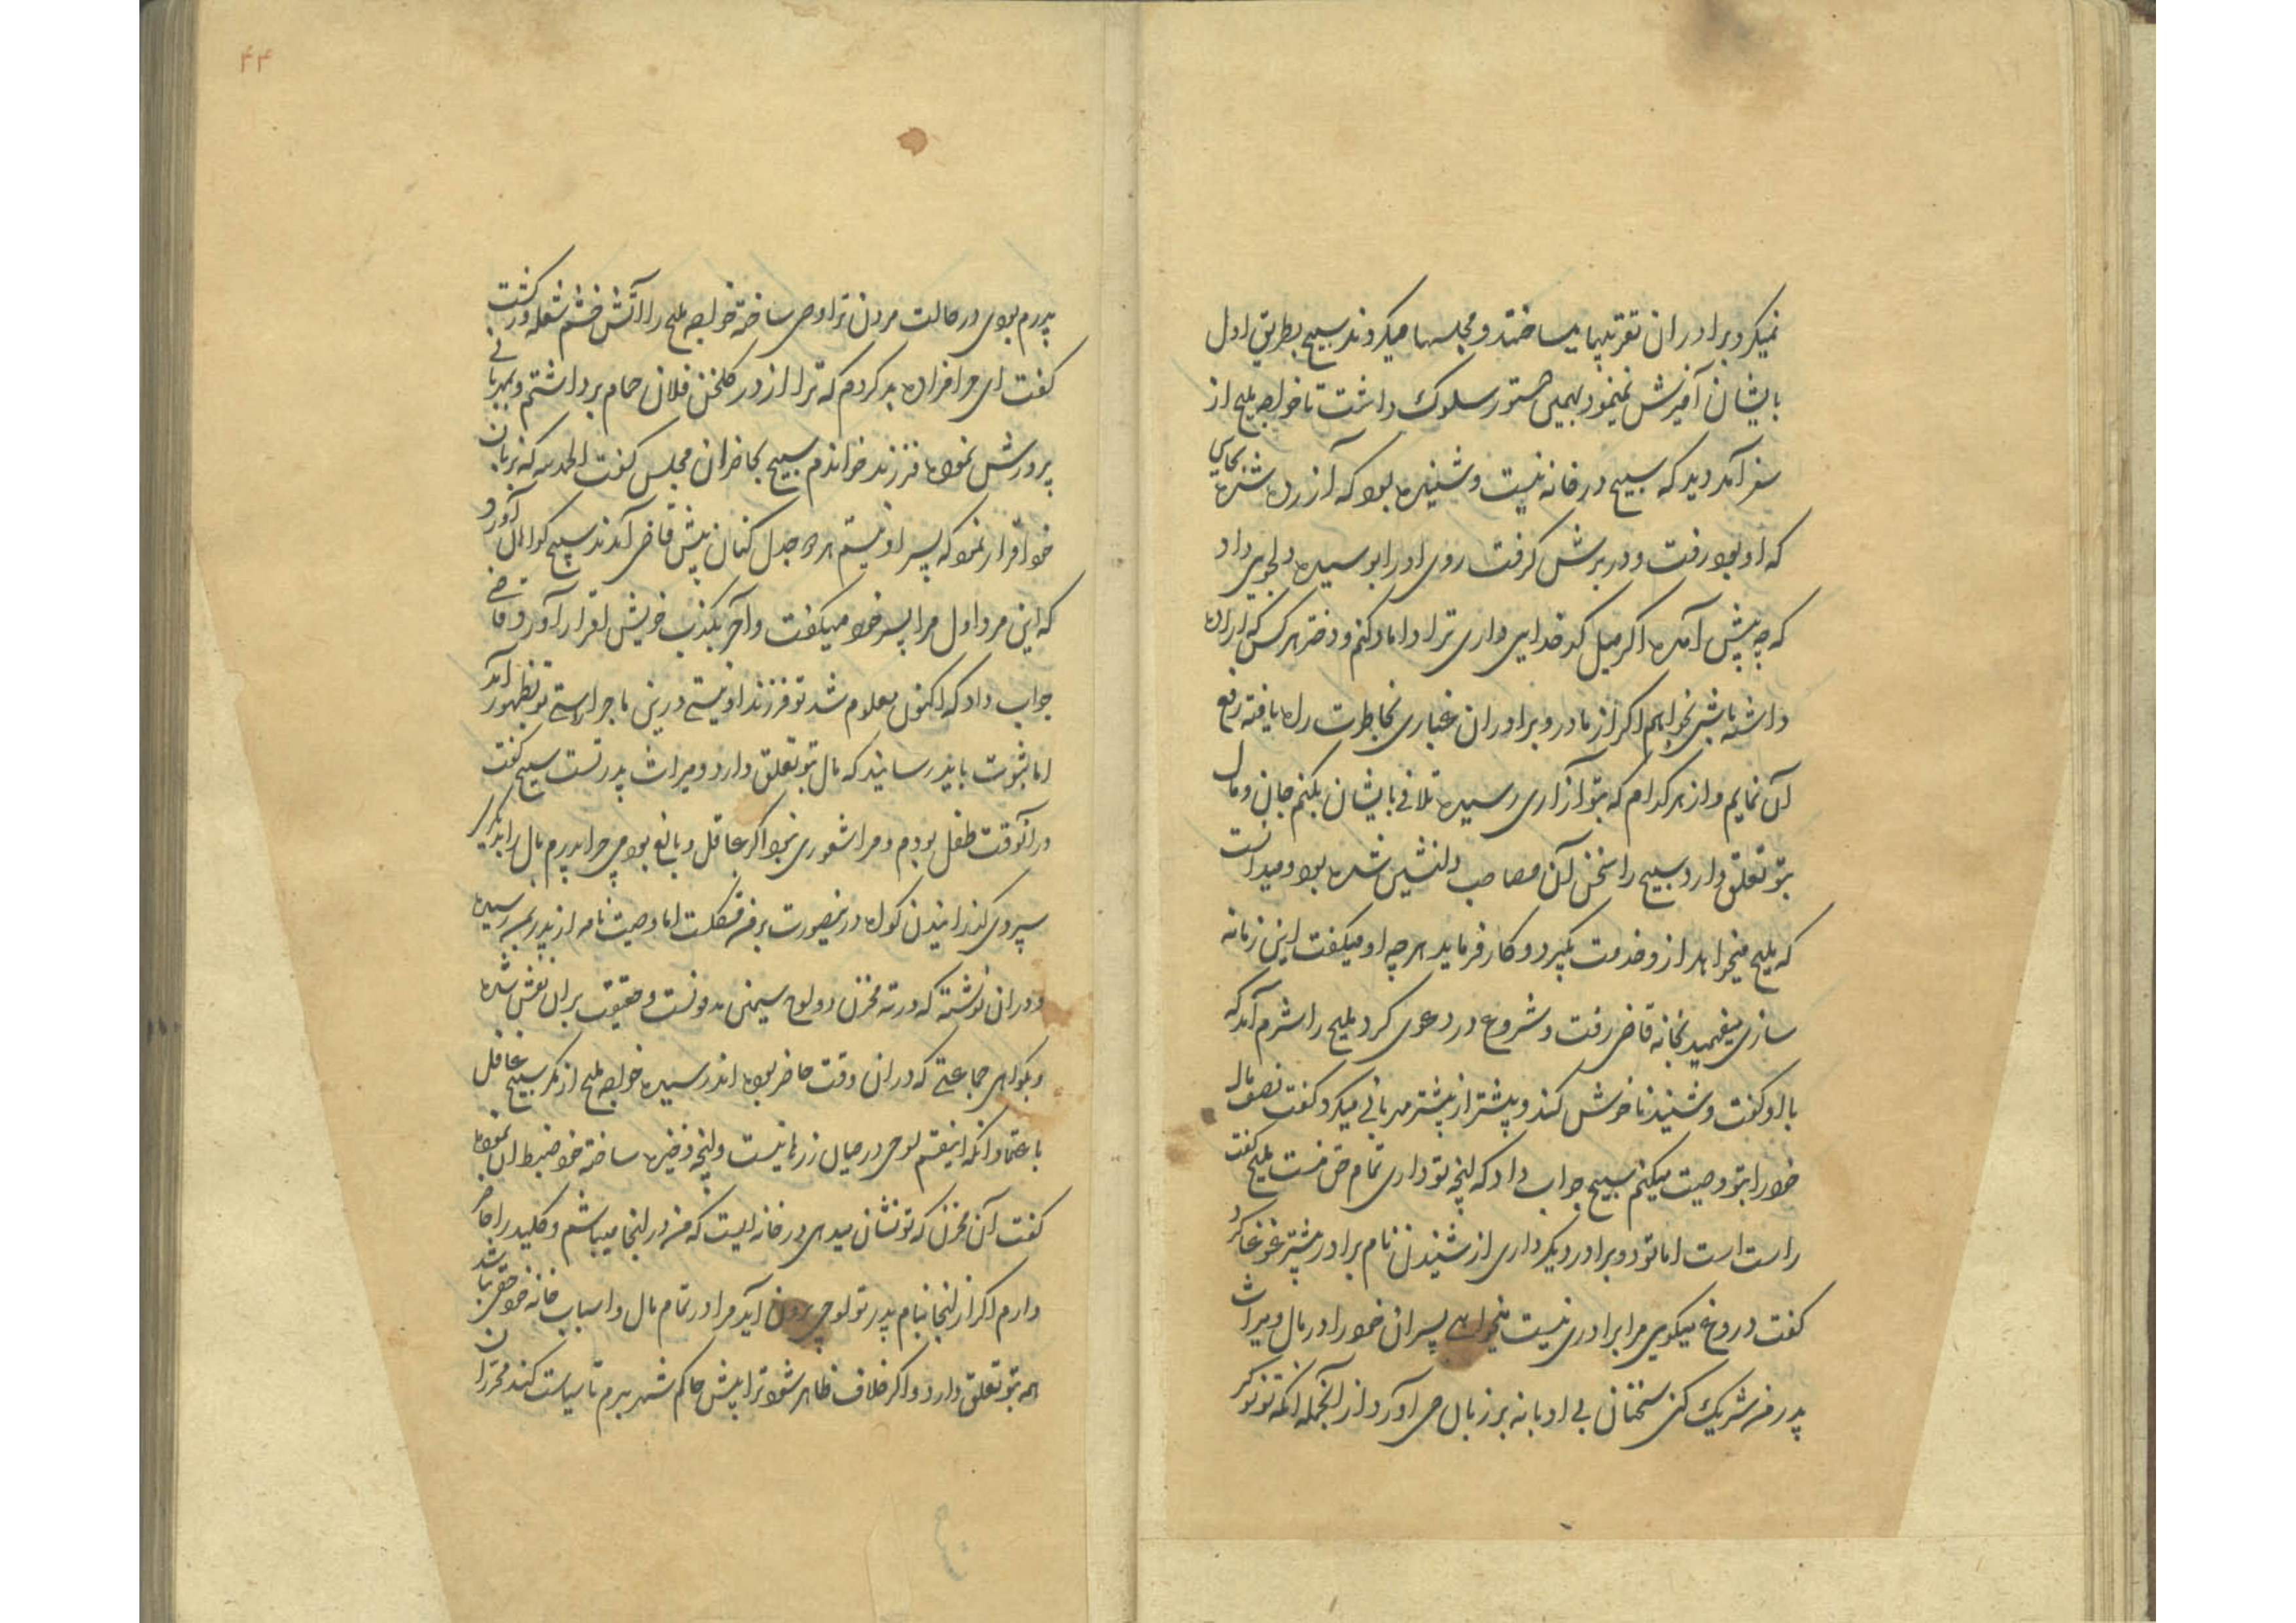 نمیکرد برادران تقریبها میساختند و مجلسها میکردند سبیح بطریق اول
بایشان آمیزش نمینمود بهمین دستور سلوک داشت تا خواجه ملیح از
سفر آمد دید که سبیح در خانه نیست و شنیده بود که آزرده شده بجایی
که او بود رفت و در برش گرفت روی او را بوسیده دلجویی داد
که چه پیش آمده اگر میل کدخدایی داری ترا داماد کنم و دختر هر کس که اراده
داشته باشی بخواهم اگر از مادر و برادران غباری بخاطرت راه یافته رفع
آن نمایم و از هر کدام که بتو آزاری رسیده تلافی بایشان بکنم جان و مال
بتو تعلق دارد سبیح را سخن آن مصاحب دلنشین شده بود و میدانست
که ملیح میخواهد ازو خدمت بگیرد و کار فرماید هر چه او میگفت این زمانه
سازی میفهمید بخانه قاضی رفت و شروع در دعوی کرد ملیح را شرم آمد که
با او گفت و شنید ناخوش کند و پیشتر از پیشتر مهربانی میکرد گفت نصف مال
خود را بتو وصیت میکنم سبیح جواب داد که آنچه تو داری تمام حق منست ملیح گفت
راست است اما تو دو برادر دیگر داری از شنیدن نام برادر بیشتر غوغا کرد
گفت دروغ میگویی مرا برادری نیست میخواهی پسران خود را در مال و میراث
پدر من شریک کنی سخنان بی ادبانه بر زبان می آورد از آنجمله آنکه تو نوکر
پدرم بودی در حالت مردن ترا وصی ساخته خواجه ملیح را آتش خشم شعله ور گشت
گفت ای حرامزاده بد کردم که ترا از در گلخن فلان حمام برداشتم و بمهربانی
پرورش نموده فرزند خواندم سبیح بحاضران مجلس گفت الحمدلله که بزبان
خود اقرار نمود که پسر او نیستم هر دو جدل کنان پیش قاضی آمدند سبیح گواهان آورد
که این مرد اول مرا پسر خود میگفت و آخر بکذب خویش اقرار آورد قاضی
جواب داد که اکنون معلوم شد تو فرزند او نیستی درین ماجرا راستی تو بظهور آمد
اما بثبوت باید رسانید که مال بتو تعلق دارد و میراث پدر تست سبیح گفت
در آنوقت طفل بودم و مرا شعوری نبود اگر عاقل و بالغ بودمی چرا پدرم مال را بدیگر
سپردی گذرانیدن گواه درینصورت بر من مشکلست اما وصیت نامه از پدر بمن رسیده
و در آن نوشته که در ته مخزن دو لوح سیمین مدفونست و حقیقت بر آن نقش شده
و بگواهی جماعتی که در آن وقت حاضر بوده اند رسیده خواجه ملیح از مکر سبیح غافل
باعتماد آنکه اینقسم لوحی در میان زرها نیست و آنچه ذخیره ساخته خود ضبط آن نموده
گفت آن مخزن که تو نشان میدهی در خانه ایست که من در آنجا میباشم و کلید را حاضر
دارم اگر از آنجا بنام پدر تو لوحی بیرون آید مرا در تمام مال و اسباب خانه خود حقی نباشد
همه بتو تعلق دارد و اگر خلاف ظاهر شود ترا پیش حاکم شهر برم تا سیاست کند
۴۴